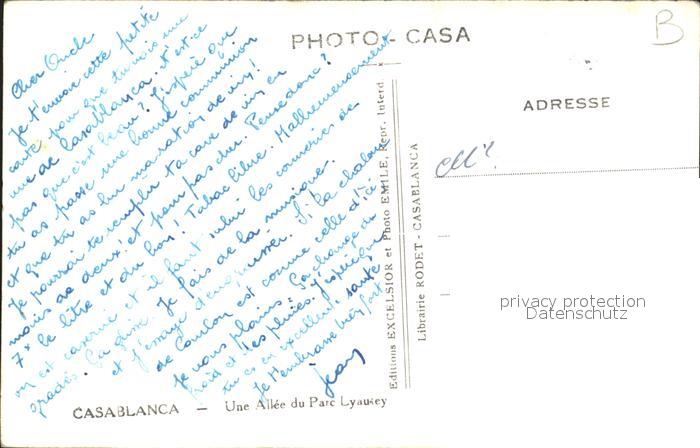 PHOTO - CASA
B
ADRESSE
Mr.
Cher Oncle
Je t'envoie cette petite
carte pour que tu vois une
vue de Casablanca. N'est-ce
pas que c'est beau? J'espère que
tu as passé une bonne communion
et que tu as bu ma ration de vin!
Je pourrai te remplir ta cave de vin en
moins de deux! et pour pas cher. Pense donc?
7f le litre et du bon! Tabac libre. Malheureusement
on est caserné et il faut subir les conneries de
gradés. La chose. Je fais de la musique.
et j'essaye d'embusquer. Si la chaleur
de Coulon est comme celle d'ici
je vous plains. Ça change du
froid et des pluies. J'espère que
tu es en excellente santé
Je t'embrasse bien fort
Jean
Editions EXCELSIOR et Photo EMILE, Repr. Interd.
Librairie RODET - CASABLANCA
privacy protection
Datenschutz
CASABLANCA — Une Allée du Parc Lyautey